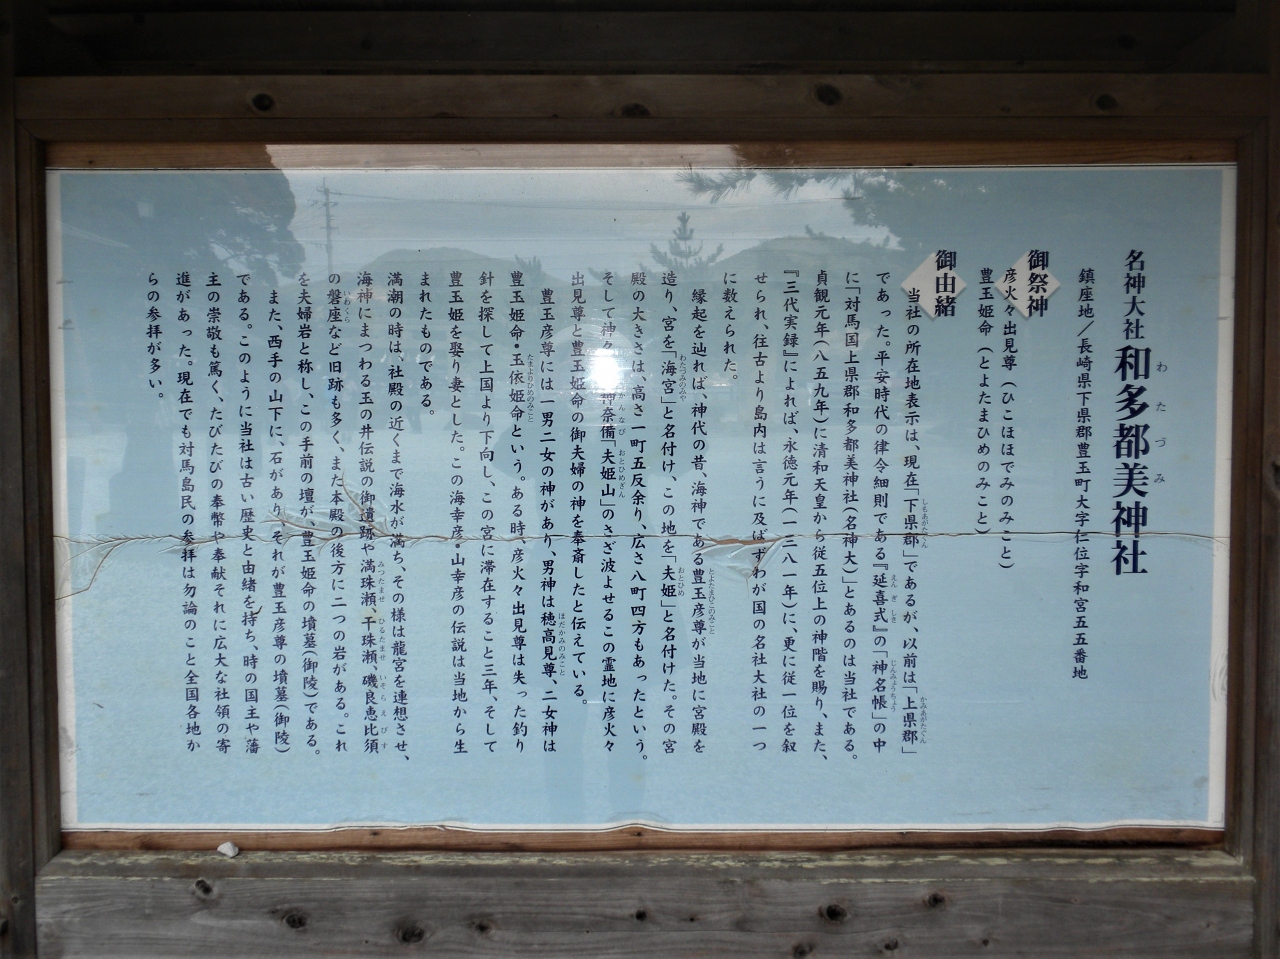 名神大社 和多都美神社
わたづみ
鎮座地／長崎県下県郡豊玉町大字仁位字和宮五五番地
御祭神
彦火々出見尊（ひこほほでみのみこと）
豊玉姫命（とよたまひめのみこと）
御由緒
当社の所在地表示は、現在「下県郡」であるが、以前は「上県郡」
しもあがたぐん かみあがたぐん
であった。平安時代の律令細則である『延喜式』の「神名帳」の中
えんぎしき じんみょうちょう
に「対馬国上県郡和多都美神社（名神大）」とあるのは当社である。
貞観元年（八五九年）に清和天皇から従五位上の神階を賜り、また、
『三代実録』によれば、永徳元年（一三八一年）に、更に従一位を叙
せられ、往古より島内は言うに及ばずわが国の名社大社の一つ
に数えられた。
縁起を辿れば、神代の昔、海神である豊玉彦尊が当地に宮殿を
とよたまひこのみこと
造り、宮を「海宮」と名付け、この地を「夫姫」と名付けた。その宮
わたつみのみや おとひめ
殿の大きさは、高さ一町五反余り、広さ八町四方もあったという。
そして神々 神奈備「夫姫山」のさざ波よせるこの霊地に彦火々
かんなび おとひめざん
出見尊と豊玉姫命の御夫婦の神を奉斎したと伝えている。
豊玉彦尊には一男二女の神があり、男神は穂高見尊、二女神は
ほだかみのみこと
豊玉姫命・玉依姫命という。ある時、彦火々出見尊は失った釣り
たまよりひめのみこと
針を探して上国より下向し、この宮に滞在すること三年、そして
豊玉姫を娶り妻とした。この海幸彦・山幸彦の伝説は当地から生
まれたものである。
満潮の時は、社殿の近くまで海水が満ち、その様は龍宮を連想させ、
海神にまつわる玉の井伝説の御遺跡や満珠瀬、干珠瀬、磯良恵比須
みつたませ ひるたませ いそらえびす
の磐座など旧跡も多く、また本殿の後方に二つの岩がある。これ
いわくら
を夫婦岩と称し、この手前の壇が、豊玉姫命の墳墓（御陵）である。
また、西手の山下に、石があり、それが豊玉彦尊の墳墓（御陵）
である。このように当社は古い歴史と由緒を持ち、時の国主や藩
主の崇敬も篤く、たびたびの奉幣や奉献それに広大な社領の寄
進があった。現在でも対馬島民の参拝は勿論のこと全国各地か
らの参拝が多い。